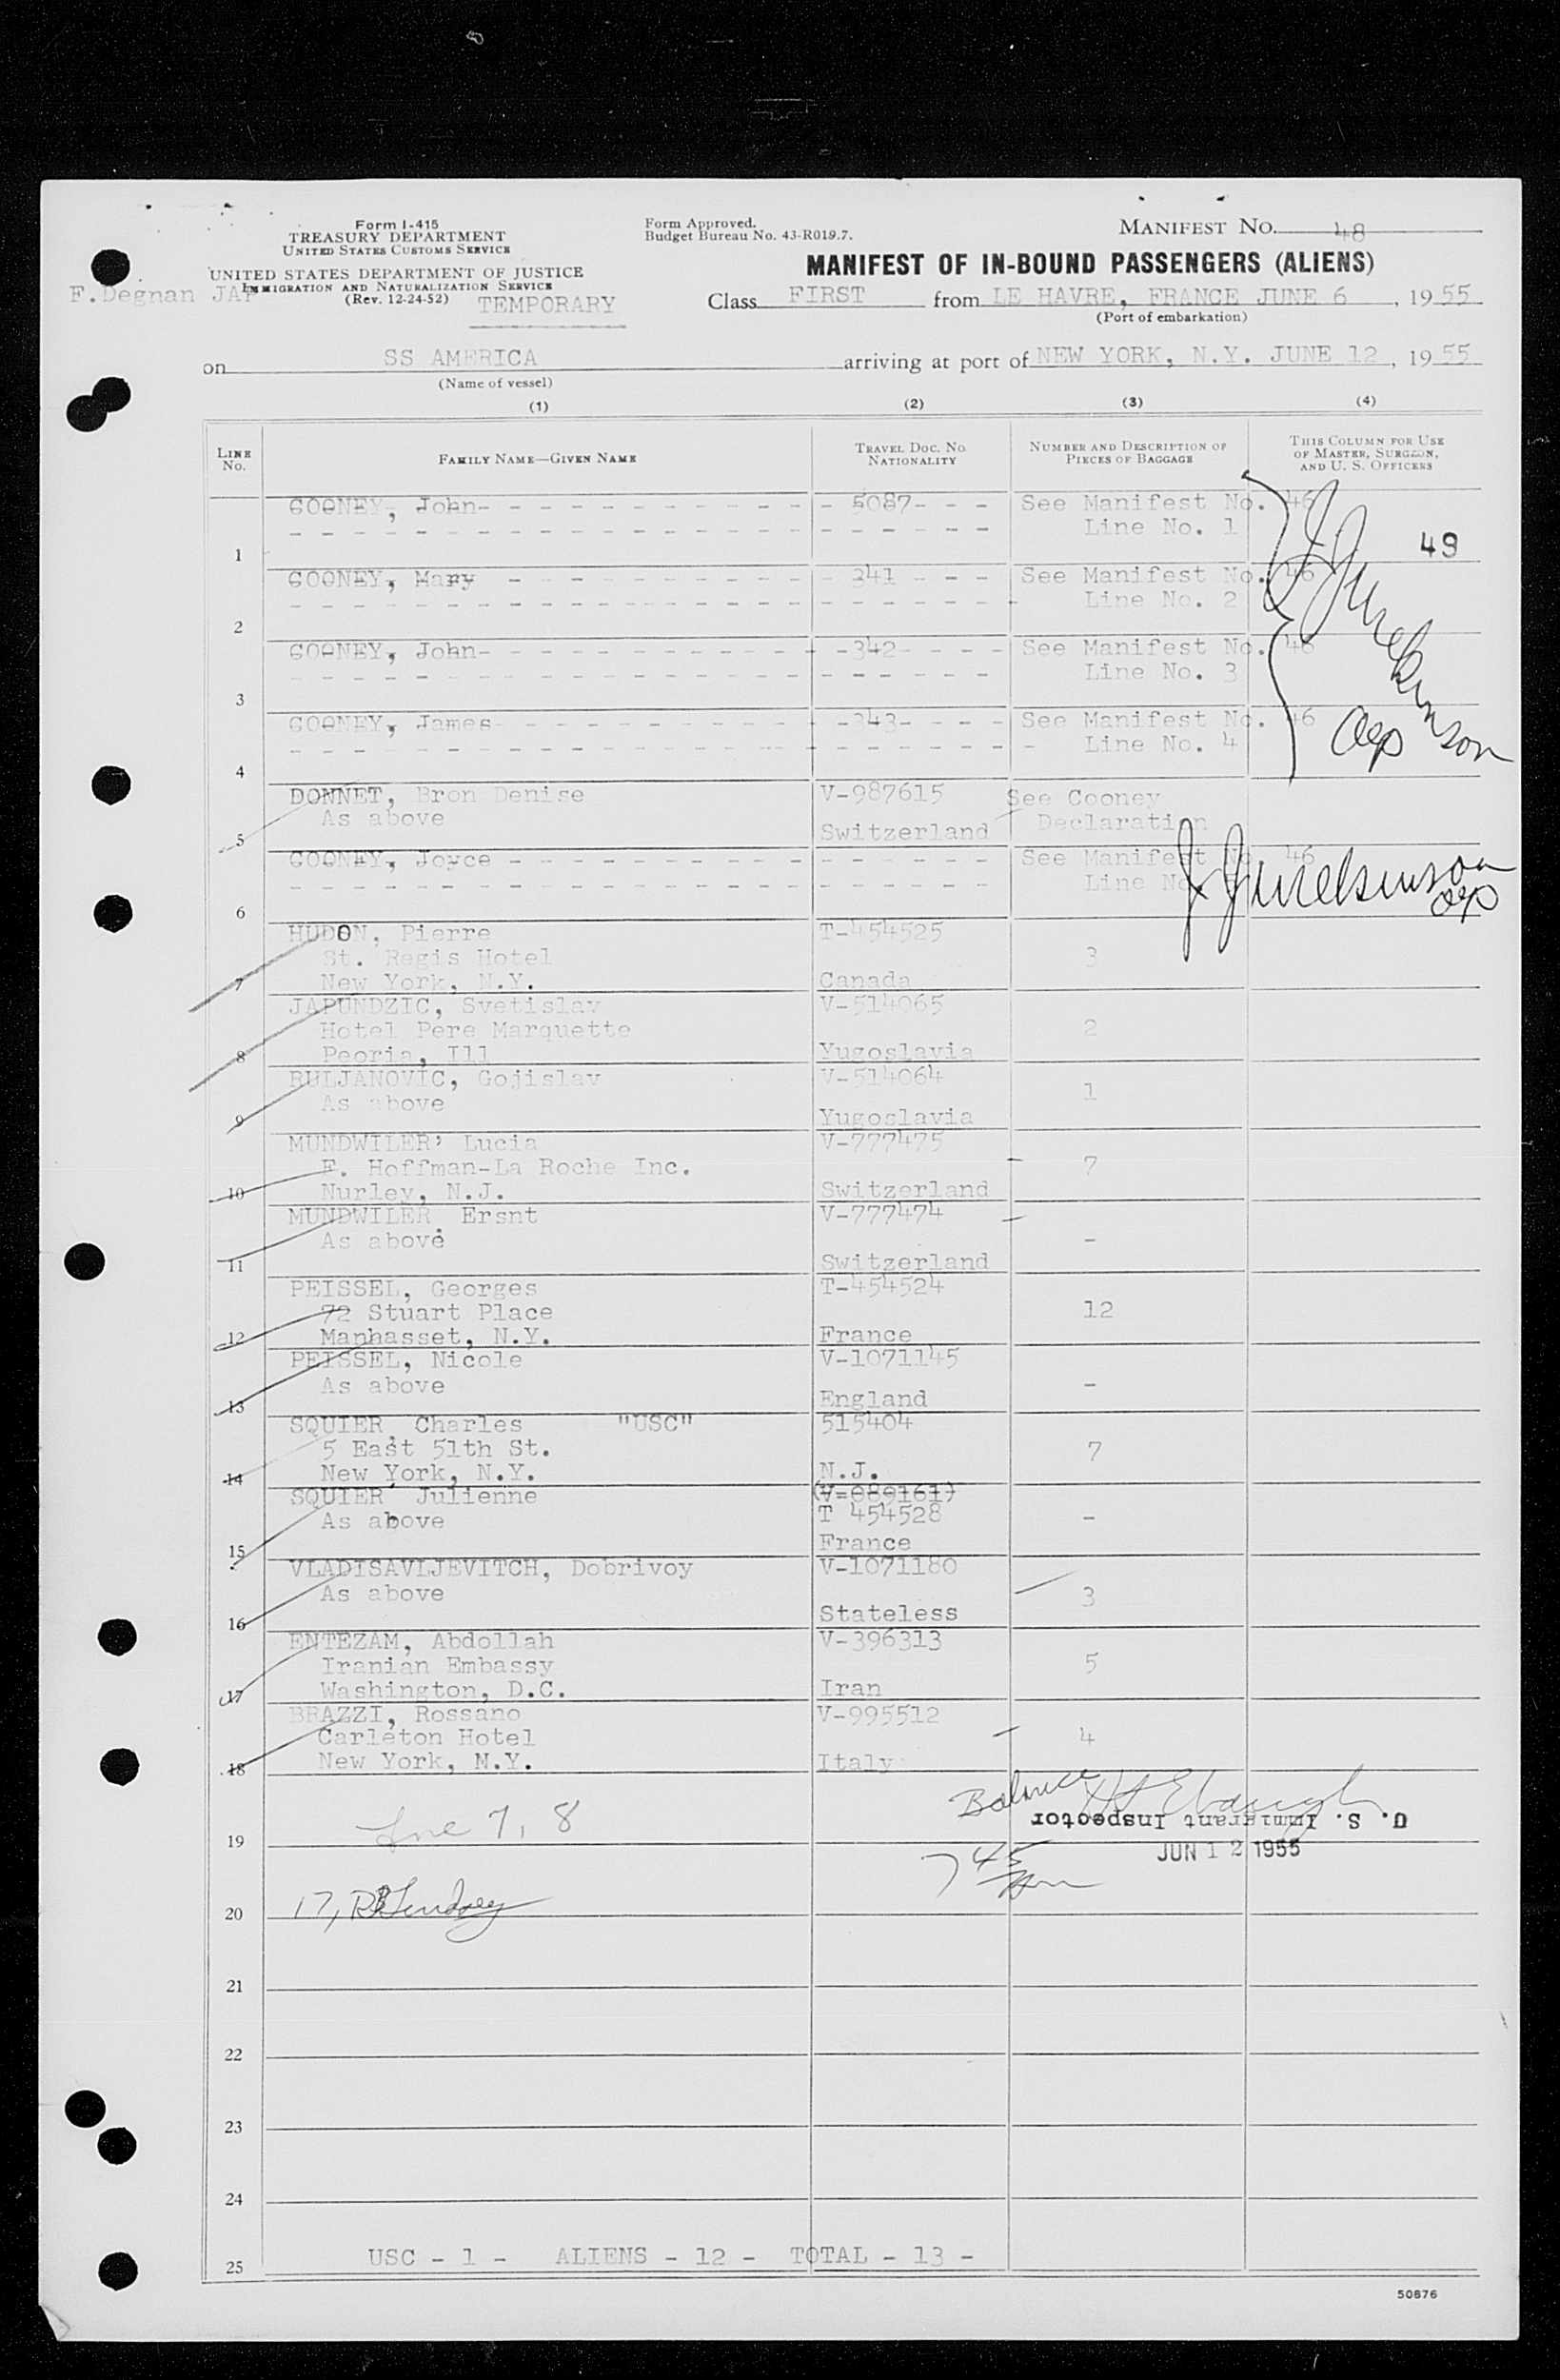 Form I-415
TREASURY DEPARTMENT
UNITED STATES CUSTOMS SERVICE
UNITED STATES DEPARTMENT OF JUSTICE
IMMIGRATION AND NATURALIZATION SERVICE
(Rev. 12-24-52)
F.Degnan
TEMPORARY
Form Approved.
Budget Bureau No. 43-R019.7.
MANIFEST NO. 48
MANIFEST OF IN-BOUND PASSENGERS (ALIENS)
Class FIRST from LE HAVRE, FRANCE JUNE 6, 1955
(Port of embarkation)
on SS AMERICA arriving at port of NEW YORK, N.Y. JUNE 12, 1955
(Name of vessel)
(1) (2) (3) (4)
LINE No. FAMILY NAME—GIVEN NAME TRAVEL DOC. NO. NATIONALITY NUMBER AND DESCRIPTION OF PIECES OF BAGGAGE THIS COLUMN FOR USE OF MASTER, SURGEON, AND U. S. OFFICERS
COONEY, John- - - - - - - - - - - - 5087- - - See Manifest No. 46
Line No. 1
49
1
COONEY, Mary - - - - - - - - - - - 341 - - - See Manifest No. 46
Line No. 2
2
COONEY, John- - - - - - - - - - - -342- - - - See Manifest No. 46
Line No. 3
3
COONEY, James- - - - - - - - - - - -343- - - - See Manifest No. 46
Line No. 4
4
DONNET, Bron Denise V-987615 See Cooney
As above Declaration
5 Switzerland
COONEY, Joyce - - - - - - - - - - - - - - - See Manifest No. 46
Line No.
6
HUDON, Pierre T-454525
St. Regis Hotel 3
7 New York, N.Y. Canada
JAPUNDZIC, Svetislav V-514065
Hotel Pere Marquette 2
8 Peoria, Ill Yugoslavia
RULJANOVIC, Gojislav V-514064
As above 1
9 Yugoslavia
MUNDWILER, Lucia V-777475
F. Hoffman-La Roche Inc. 7
10 Nurley, N.J. Switzerland
MUNDWILER, Ersnt V-777474
As above -
11 Switzerland
PEISSEL, Georges T-454524
72 Stuart Place 12
12 Manhasset, N.Y. France
PEISSEL, Nicole V-1071145
As above -
13 England
SQUIER, Charles "USC" 515404
5 East 51th St. 7
14 New York, N.Y. N.J.
SQUIER, Julienne (V-089161)
As above T 454528 -
15 France
VLADISAVLJEVITCH, Dobrivoy V-1071180
As above 3
16 Stateless
ENTEZAM, Abdollah V-396313
Iranian Embassy 5
17 Washington, D.C. Iran
BRAZZI, Rossano V-995512
Carleton Hotel 4
18 New York, N.Y. Italy
Balance
U. S. Immigrant Inspector
Line 7, 8
19
JUN 12 1955
7 45
17,
20
21
22
23
24
USC - 1 - ALIENS - 12 - TOTAL - 13 -
25
50876